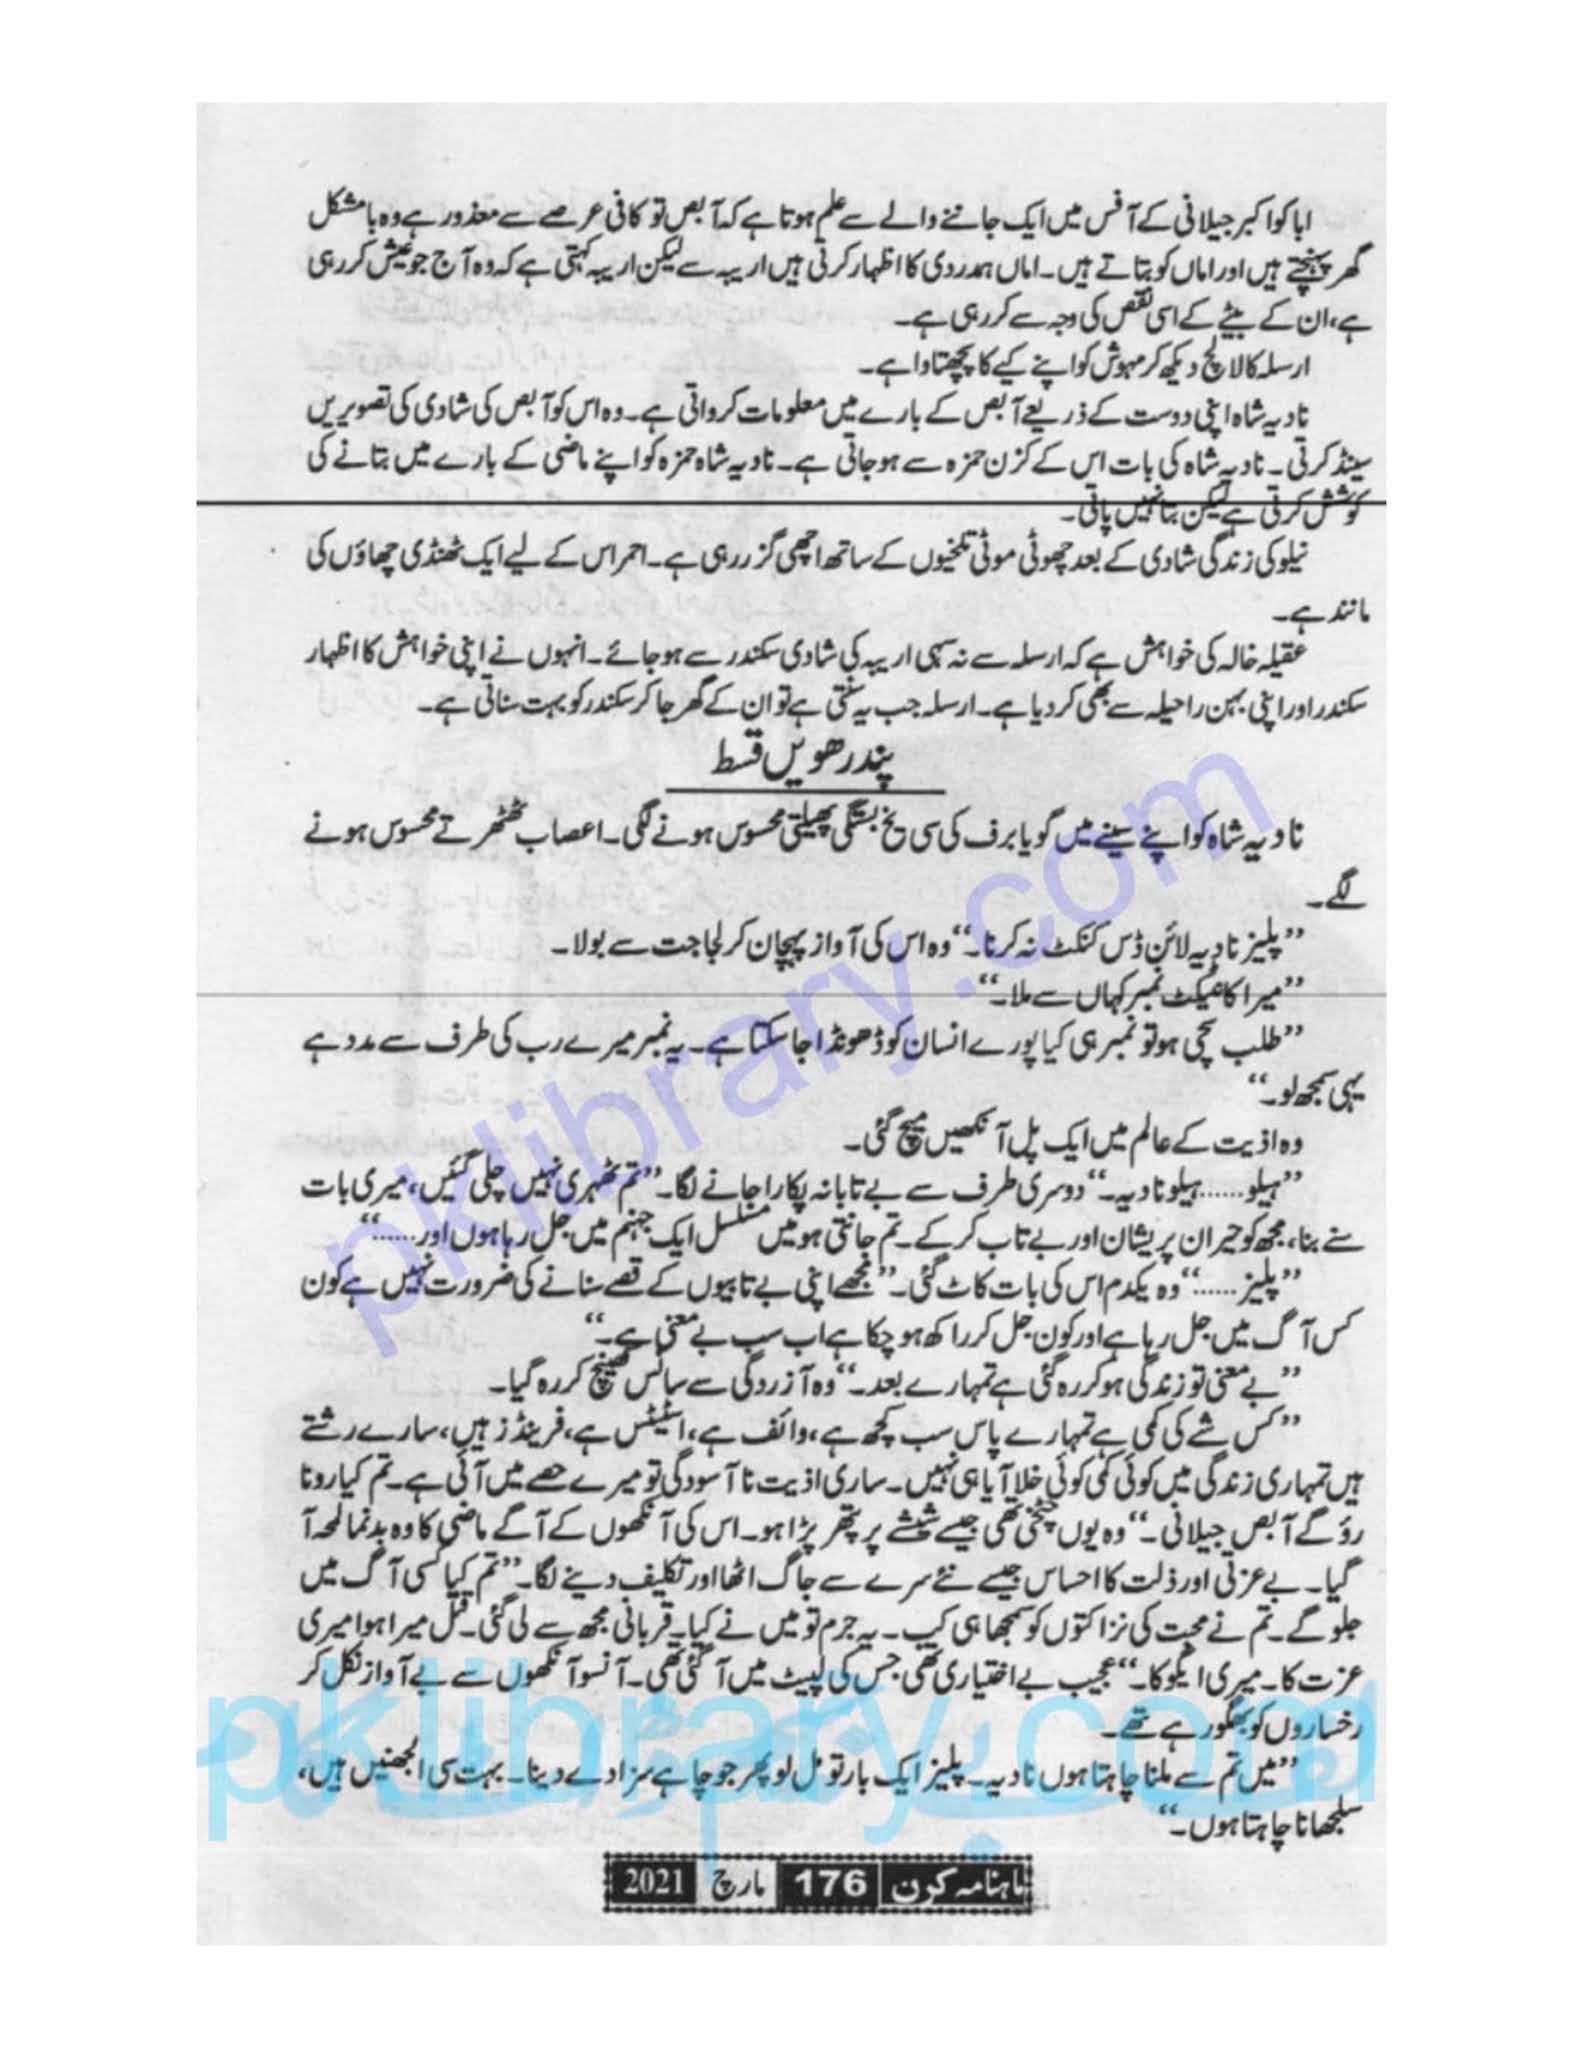 ابا کو اکبر جیلانی کے آفس میں ایک جاننے والے سے علم ہوتا ہے کہ آبص تو کافی عرصے سے معذور ہے وہ بامشکل
گھر پہنچتے ہیں اور اماں کو بتاتے ہیں۔ اماں ہمدردی کا اظہار کرتی ہیں اریبہ سے لیکن اریبہ کہتی ہے کہ وہ آج جو عیش کر رہی
ہے، ان کے بیٹے کے اسی نقص کی وجہ سے کر رہی ہے۔
ارسلہ کا لالچ دیکھ کر مہوش کو اپنے کیے کا پچھتاوا ہے۔
نادیہ شاہ اپنی دوست کے ذریعے آبص کے بارے میں معلومات کرواتی ہے۔ وہ اس کو آبص کی شادی کی تصویریں
سینڈ کرتی۔ نادیہ شاہ کی بات اس کے کزن حمزہ سے ہوجاتی ہے۔ نادیہ شاہ حمزہ کو اپنے ماضی کے بارے میں بتانے کی
کوشش کرتی ہے لیکن بتا نہیں پاتی۔
نیلو کی زندگی شادی کے بعد چھوٹی موٹی تلخیوں کے ساتھ اچھی گزر رہی ہے۔ احمر اس کے لیے ایک ٹھنڈی چھاؤں کی
مانند ہے۔
عقیلہ خالہ کی خواہش ہے کہ ارسلہ سے نہ سہی اریبہ کی شادی سکندر سے ہوجائے۔ انہوں نے اپنی خواہش کا اظہار
سکندر اور اپنی بہن راحیلہ سے بھی کر دیا ہے۔ ارسلہ جب یہ سنتی ہے تو ان کے گھر جا کر سکندر کو بہت سناتی ہے۔
پندرھویں قسط
نادیہ شاہ کو اپنے سینے میں گویا برف کی سی یخ بستگی پھیلتی محسوس ہونے لگی۔ اعصاب ٹھٹھرتے محسوس ہونے
لگے۔
’’پلیز نادیہ لائن ڈس کنکٹ نہ کرنا۔‘‘ وہ اس کی آواز پہچان کر لجاجت سے بولا۔
’’میرا کانٹیکٹ نمبر کہاں سے ملا۔‘‘
’’طلب سچی ہو تو نمبر ہی کیا پورے انسان کو ڈھونڈا جاسکتا ہے۔ یہ نمبر میرے رب کی طرف سے مدد ہے
یہی سمجھ لو۔‘‘
وہ اذیت کے عالم میں ایک پل آنکھیں میچ گئی۔
’’ہیلو...... ہیلو نادیہ۔‘‘ دوسری طرف سے بے تابانہ پکارا جانے لگا۔ ’’تم ٹھہری نہیں چلی گئیں، میری بات
سنے بنا، مجھ کو حیران پریشان اور بے تاب کر کے۔ تم جانتی ہو میں مسلسل ایک جہنم میں جل رہا ہوں اور......‘‘
’’پلیز......‘‘ وہ یکدم اس کی بات کاٹ گئی۔ ’’مجھے اپنی بے تابیوں کے قصے سنانے کی ضرورت نہیں ہے کون
کس آگ میں جل رہا ہے اور کون جل کر راکھ ہو چکا ہے اب سب بے معنی ہے۔‘‘
’’بے معنی تو زندگی ہو کر رہ گئی ہے تمہارے بعد۔‘‘ وہ آزردگی سے سانس کھینچ کر رہ گیا۔
’’کس شے کی کمی ہے تمہارے پاس سب کچھ ہے، وائف ہے، اسٹیٹس ہے، فرینڈز ہیں، سارے رشتے
ہیں تمہاری زندگی میں کوئی کمی کوئی خلا آیا ہی نہیں۔ ساری اذیت نا آسودگی تو میرے حصے میں آئی ہے۔ تم کیا رونا
روؤ گے آبص جیلانی۔‘‘ وہ یوں چٹخی تھی جیسے شیشے پر پتھر پڑا ہو۔ اس کی آنکھوں کے آگے ماضی کا وہ بدنما لمحہ آ
گیا۔ بے عزتی اور ذلت کا احساس جیسے نئے سرے سے جاگ اٹھا اور تکلیف دینے لگا۔ ’’تم کیا کسی آگ میں
جلو گے۔ تم نے محبت کی نزاکتوں کو سمجھا ہی کب۔ یہ جرم تو میں نے کیا۔ قربانی مجھ سے لی گئی۔ قتل میرا ہوا میری
عزت کا۔ میری ایگو کا۔‘‘ عجیب بے اختیاری تھی جس کی لپیٹ میں آگئی تھی۔ آنسو آنکھوں سے بے آواز نکل کر
رخساروں کو بھگو رہے تھے۔
’’میں تم سے ملنا چاہتا ہوں نادیہ۔ پلیز ایک بار تو مل لو پھر جو چاہے سزا دے دینا۔ بہت سی الجھنیں ہیں،
سلجھانا چاہتا ہوں۔‘‘
ماہنامہ کرن 176 مارچ 2021
pklibrary.com
pklibrary.com